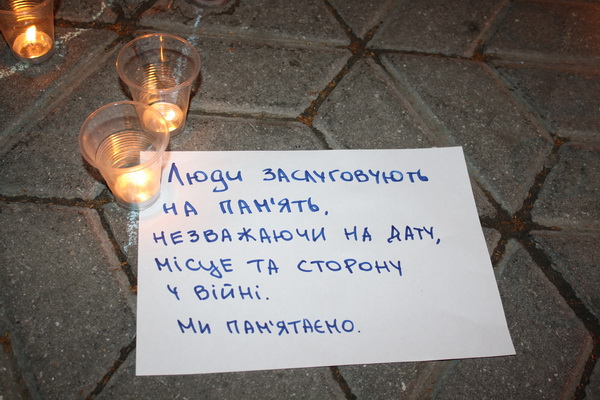 Люди заслуговують
на пам'ять,
незважаючи на дату,
місце та сторону
у війні.
Ми пам'ятаємо.